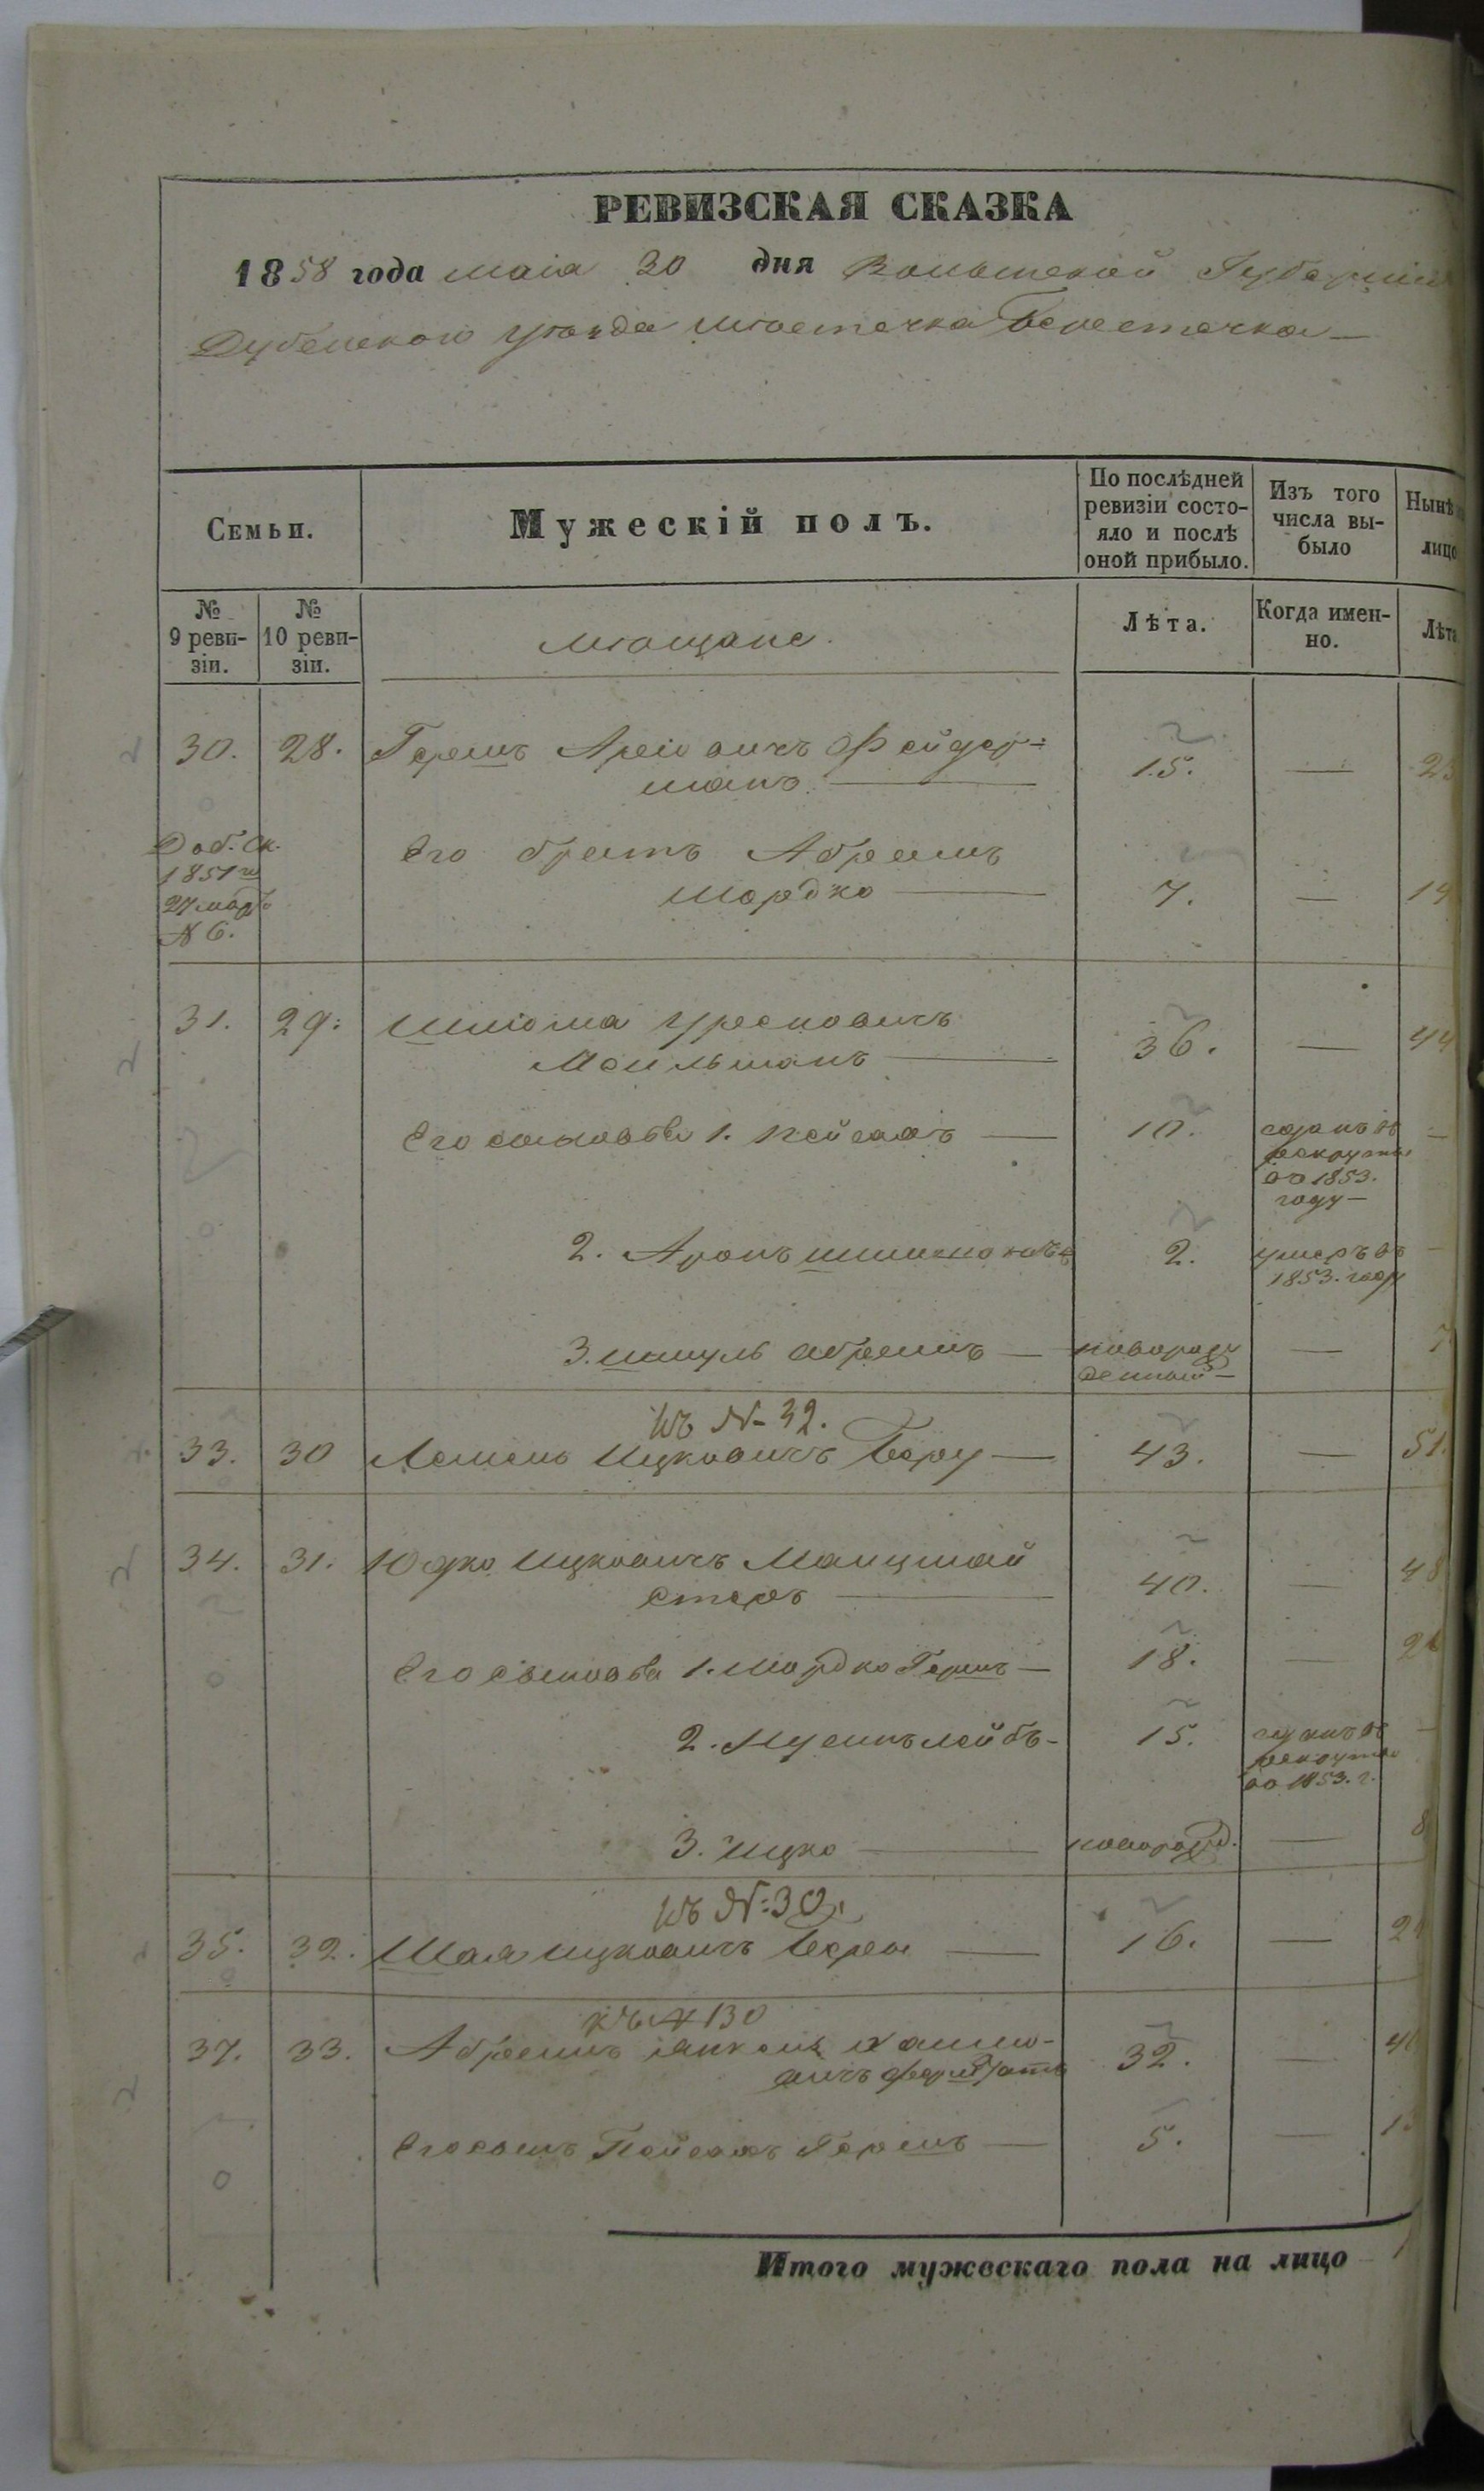 РЕВИЗСКАЯ СКАЗКА
1858 года маія 30 дня Волынской Губерніи
Дубенскаго уѣзда мѣстечка Берестечка
Семьи.
Мужескій полъ.
По послѣдней ревизіи состояло и послѣ оной прибыло.
Изъ того числа выбыло
Нынѣ
лицо
№ 9 ревизіи.
№ 10 ревизіи.
мѣщане.
Лѣта.
Когда именно.
Лѣта
30. 28. Гершъ Аріовичъ Фейдер=
манъ — 15. — 23
Доб. ск.
1851
27 мар.
№ 6.
Его братъ Абрамъ
Мордко — 7. —
31. 29. Шліома
Мейльманъ — 36. — 44
Его сыновья 1. Пейсахъ — 10. сданъ въ
рекруты
во 1853.
году —
2. Аронъ 2. умеръ въ
1853. году
3. Шмуль Абрамъ — новорож
денный — 7
къ №- 32.
33. 30 Лейзоръ Ицковичъ Беру — 43. — 51.
34. 31. Юдко Ицковичъ Манцмай
стеръ — 40. — 48
Его сыновья 1. Мордко Гершъ — 18. —
2. Мусинъ Лейбъ - 15. сданъ въ
рекруты
во 1853. г.
3. Ицко — новорожд. — 8
къ №: 30.
35. 32. Шая Ицковичъ — 16. —
къ № 130
37. 33. Абрамъ Янкель
32. —
Его сынъ Пейсахъ Гершъ — 5. —
Итого мужескаго пола на лицо